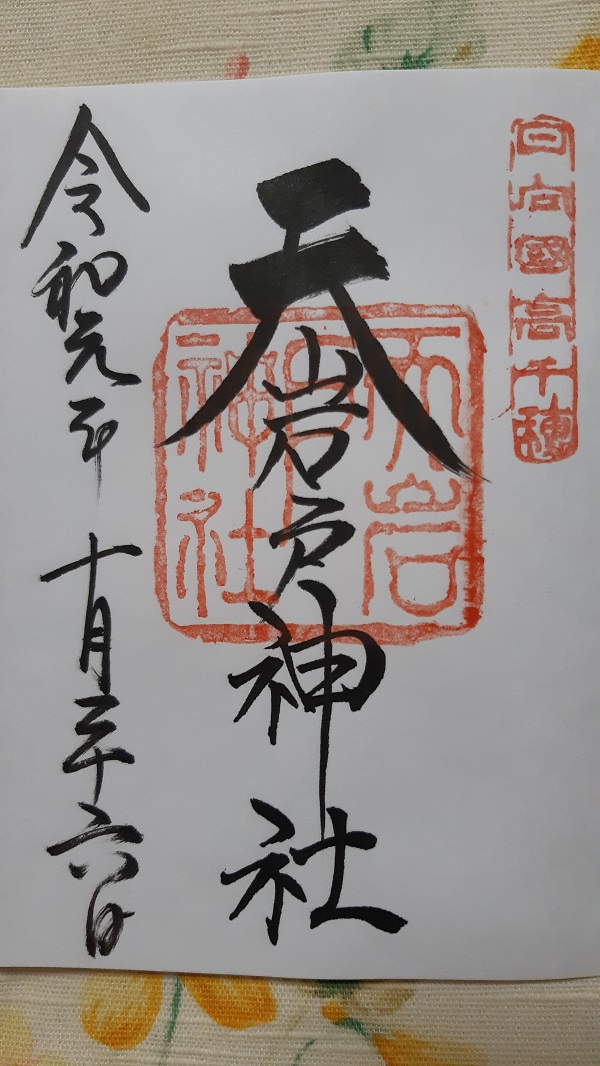 日向國高千穂
天岩戸神社
天岩戸神社
令和元年 十月二十六日